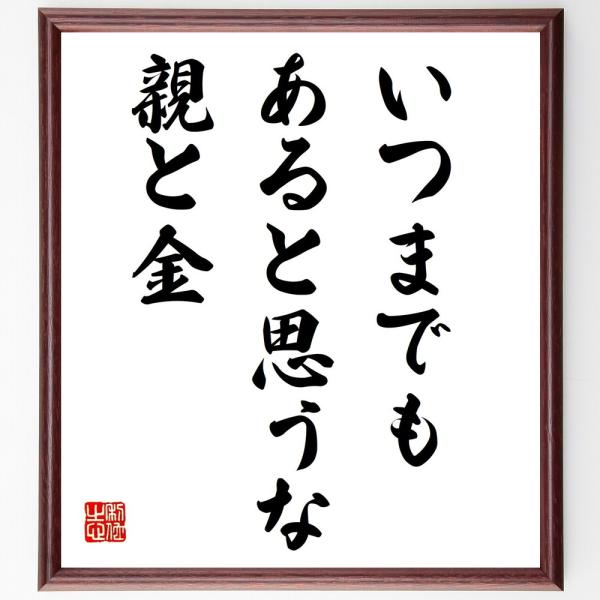 いつまでも
あると思うな
親と金